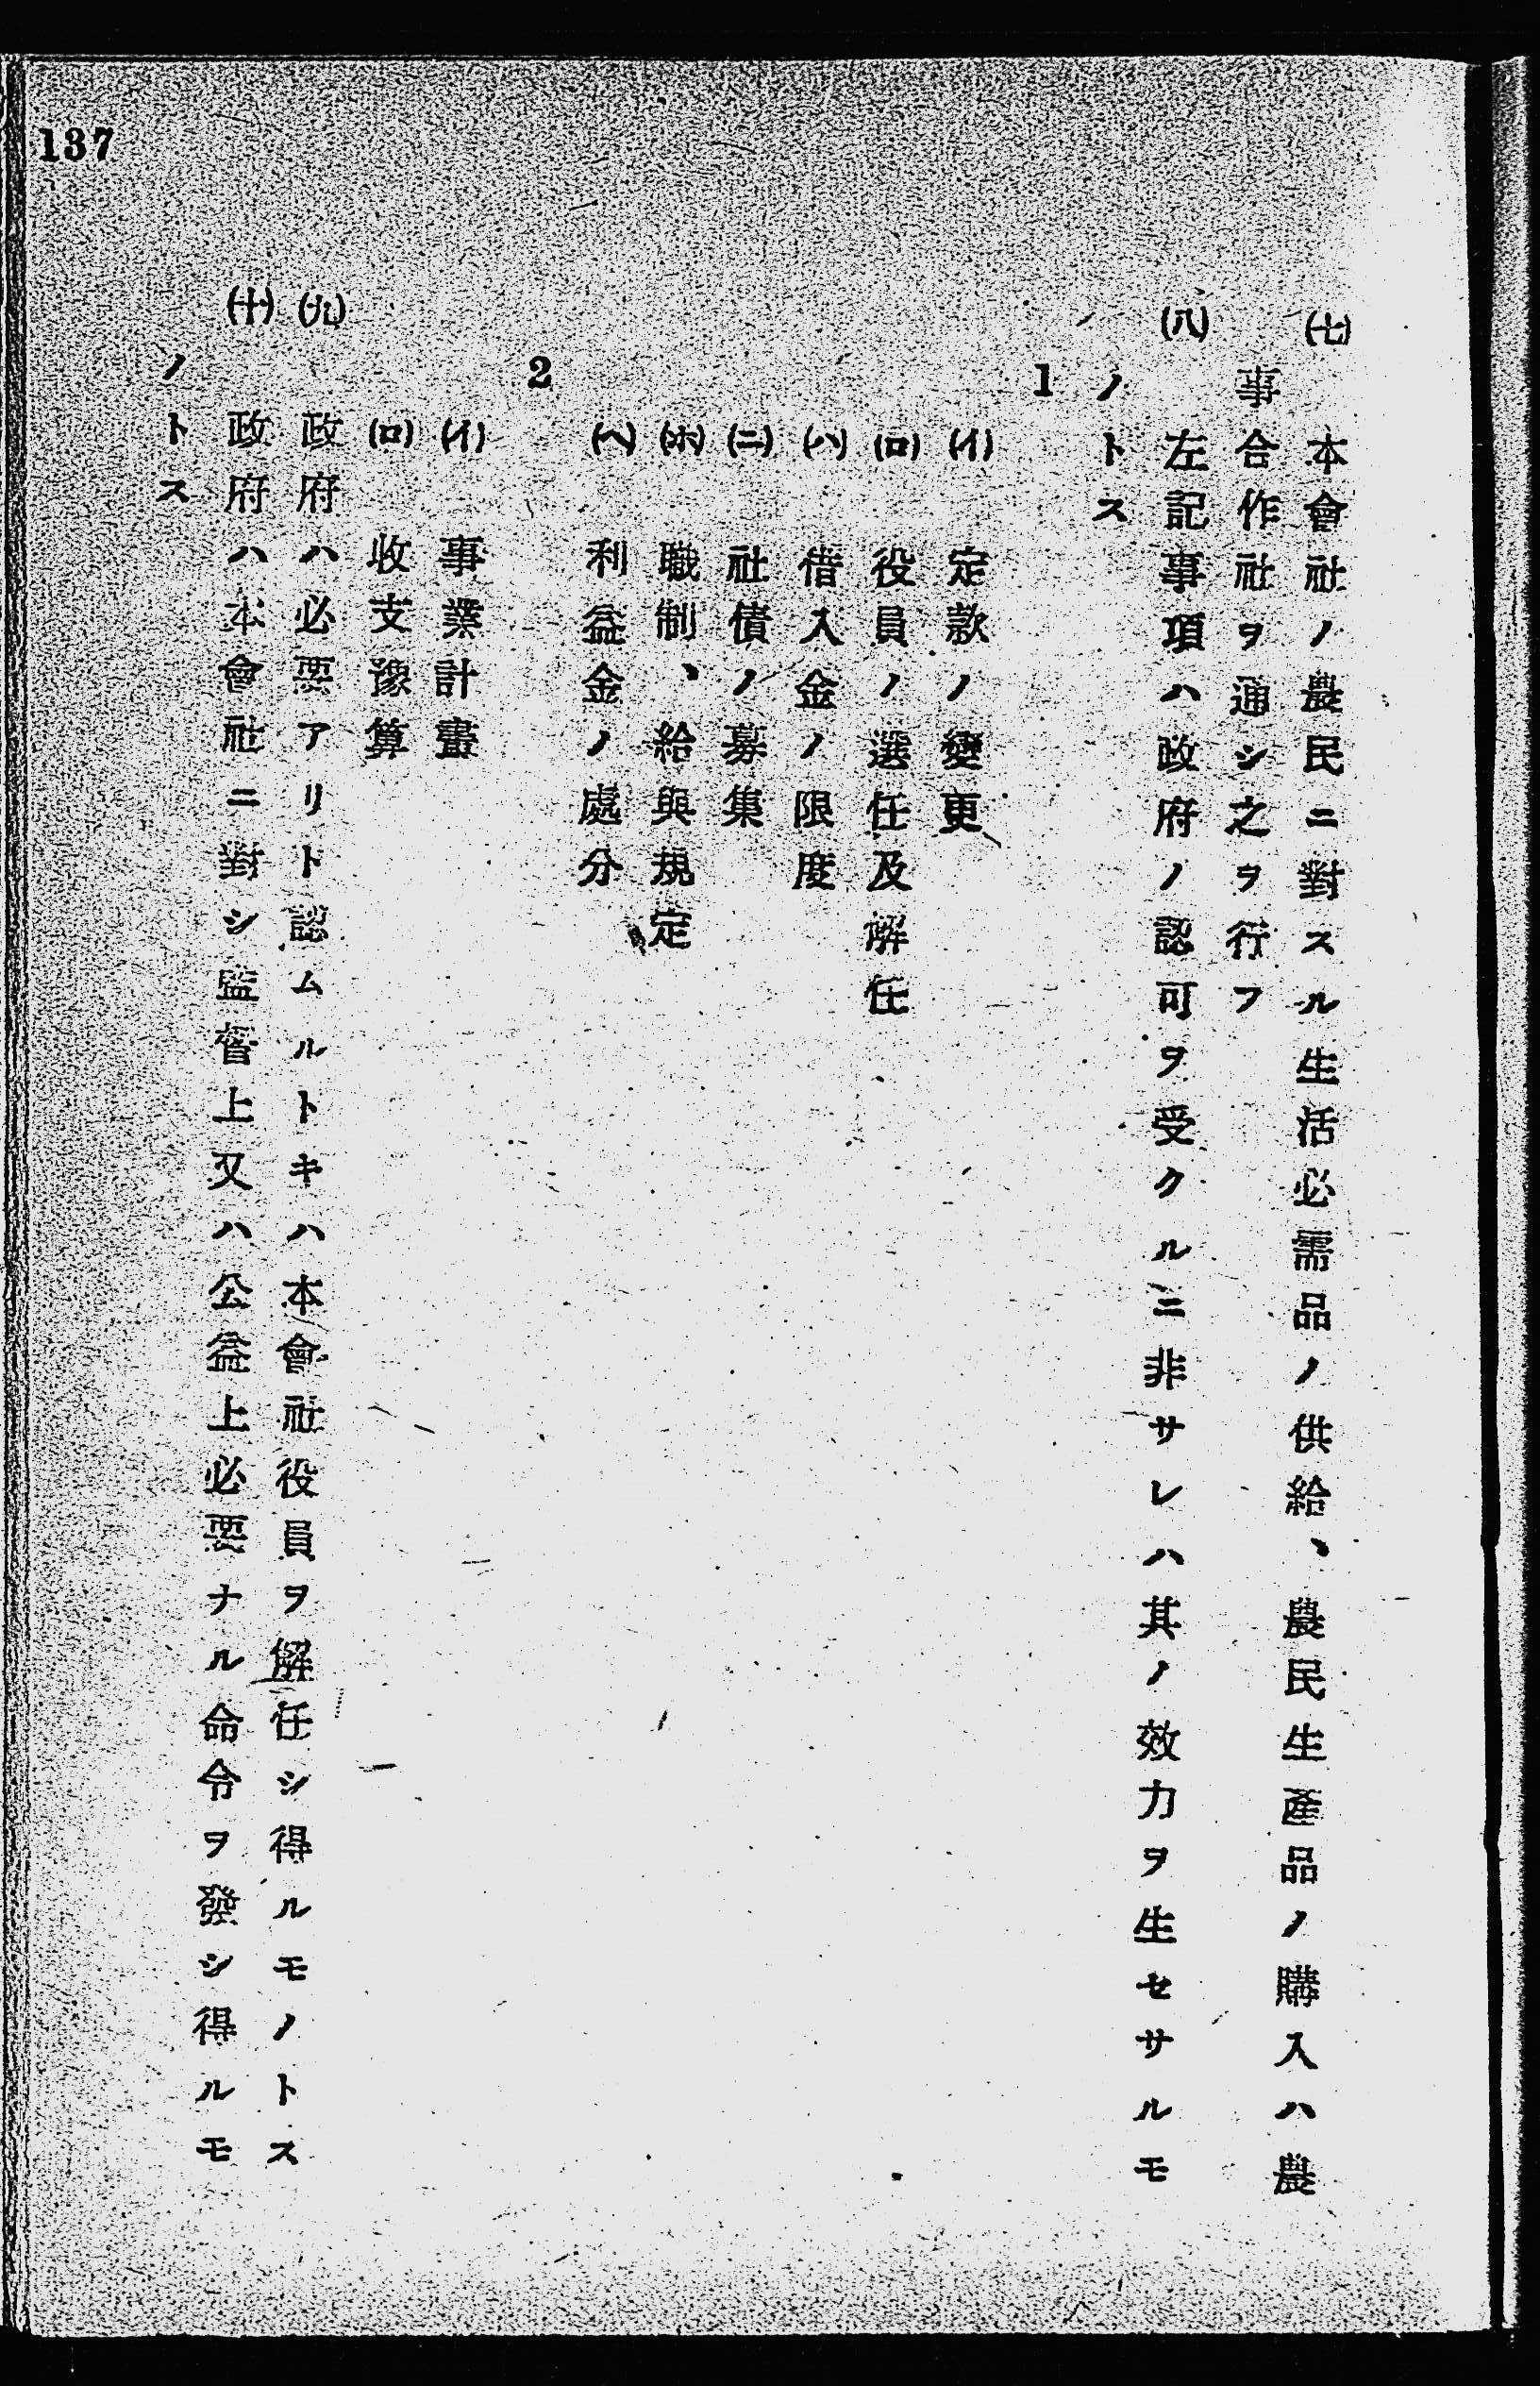 ㈦　本會社ノ農民ニ對スル生活必需品ノ供給、農民生產品ノ購入ハ農
事合作社ヲ通シ之ヲ行フ
㈧　左記事項ハ政府ノ認可ヲ受クルニ非サレハ其ノ效力ヲ生セサルモ
ノトス
1
(イ)　定款ノ變更
(ロ)　役員ノ選任及解任
(ハ)　借入金ノ限度
(ニ)　社債ノ募集
(ホ)　職制、給與規定
(ヘ)　利益金ノ處分
2
(イ)　事業計畫
(ロ)　收支豫算
㈨　政府ハ必要アリト認ムルトキハ本會社役員ヲ解任シ得ルモノトス
㈩　政府ハ本會社ニ對シ監督上又ハ公益上必要ナル命令ヲ發シ得ルモ
ノトス
137